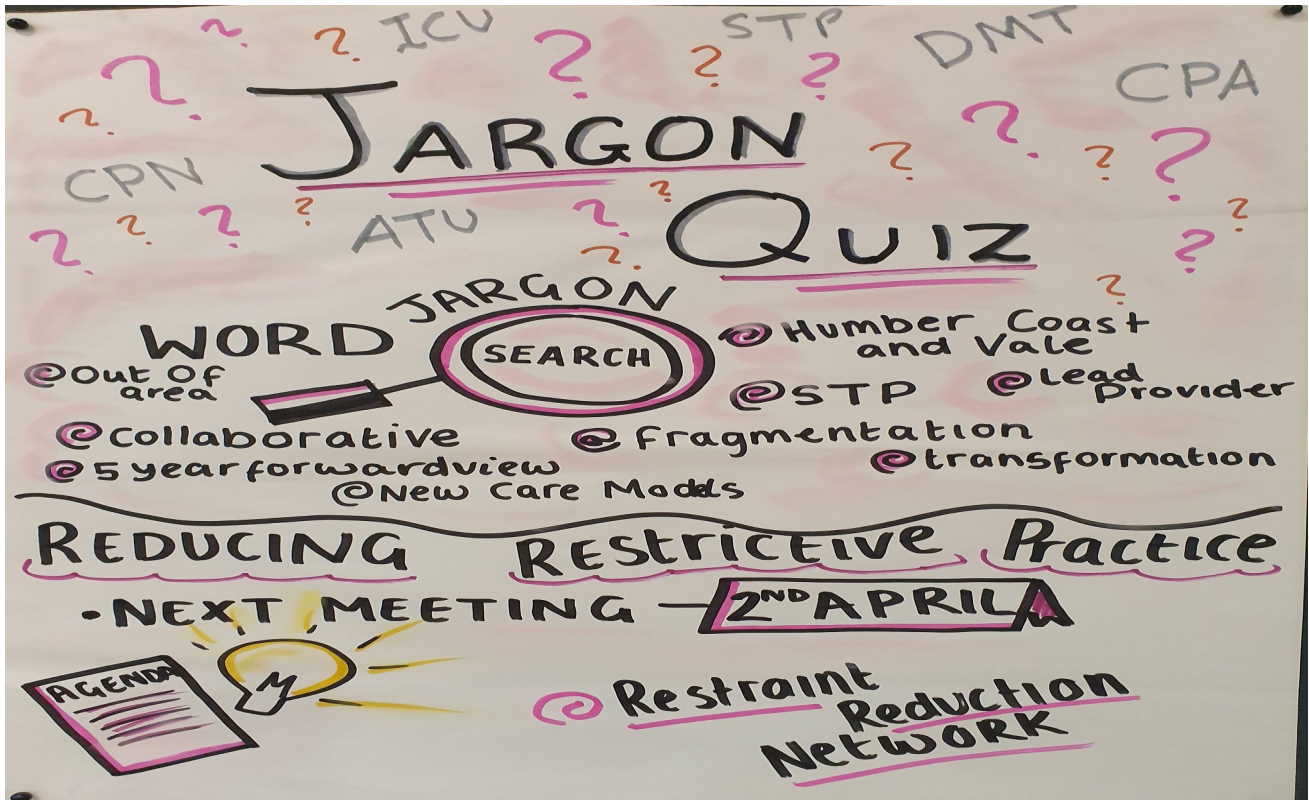 ICU
STP
DMT
CPA
JARGON
CPN
ATU
QUIZ
JARGON
WORD
SEARCH
Humber Coast
and Vale
Out Of
area
STP
Lead
Provider
Collaborative
fragmentation
5 year forward view
transformation
New Care Models
REDUCING RESTRICTIVE PRACTICE
• NEXT MEETING – 2ND APRIL
AGENDA
Restraint
Reduction
Network